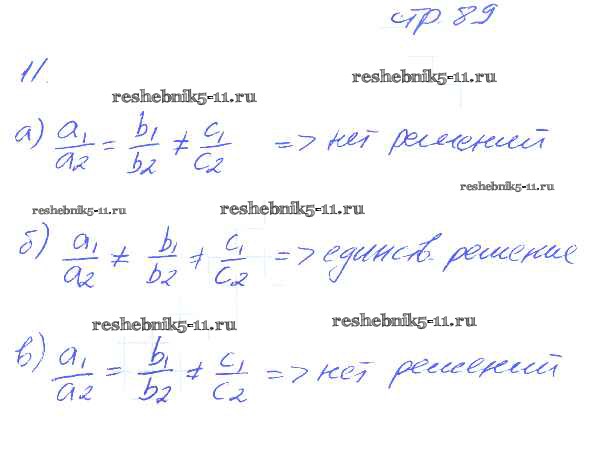 стр. 89
11.
reshebnik5-11.ru
reshebnik5-11.ru
а) a1/a2 = b1/b2 ≠ c1/c2 => нет решений
reshebnik5-11.ru
reshebnik5-11.ru reshebnik5-11.ru
б) a1/a2 ≠ b1/b2 ≠ c1/c2 => единств. решение
reshebnik5-11.ru reshebnik5-11.ru
в) a1/a2 = b1/b2 ≠ c1/c2 => нет решений